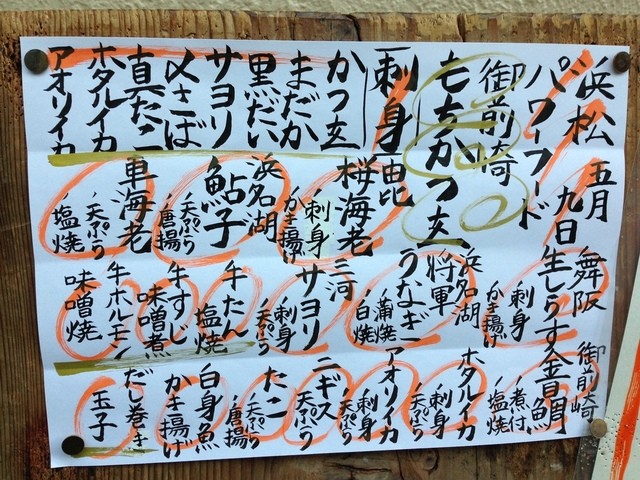 浜松
パワーフード
五月
九日
御前崎
もちかつ玄
刺身
かつ玄
まだか
黒だい
サヨリ
〆さば
真たこ
ホタルイカ
アオリイカ
舞阪
生しらす
刺身
かき揚げ
浜名湖
将軍
うなぎ
蒲焼
白焼
由比
桜海老
刺身
かき揚げ
浜名湖
鮎子
天ぷら
唐揚
車海老
天ぷら
塩焼
御前崎
金目鯛
煮付
塩焼
ホタルイカ
刺身
天ぷら
アオリイカ
刺身
天ぷら
三河
サヨリ
刺身
天ぷら
ニギス
天ぷら
牛たん
塩焼
牛すじ
味噌煮
牛ホルモン
味噌焼
たこ
天ぷら
唐揚
白身魚
かき揚げ
だし巻き
玉子